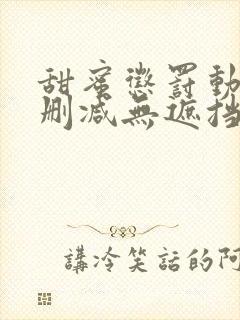 甜蜜懲罰動
刪減無遮挡
講冷笑話的阿